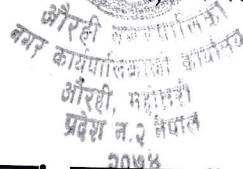 औरही नगरपालिका
नगर कार्यपालिकाको कार्यालय
औरही, महोत्तरी
प्रदेश नं.२ नेपाल
२०७४